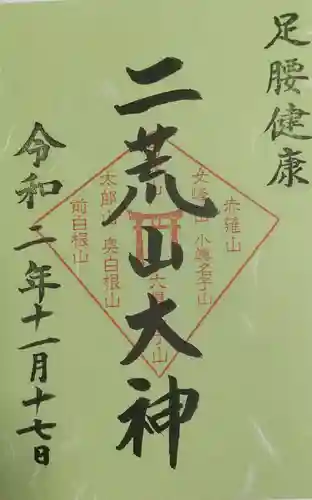 足腰健康
二荒山大神
令和二年十一月十七日
赤薙山
女峰山
小真名子山
太郎山
奥白根山
前白根山